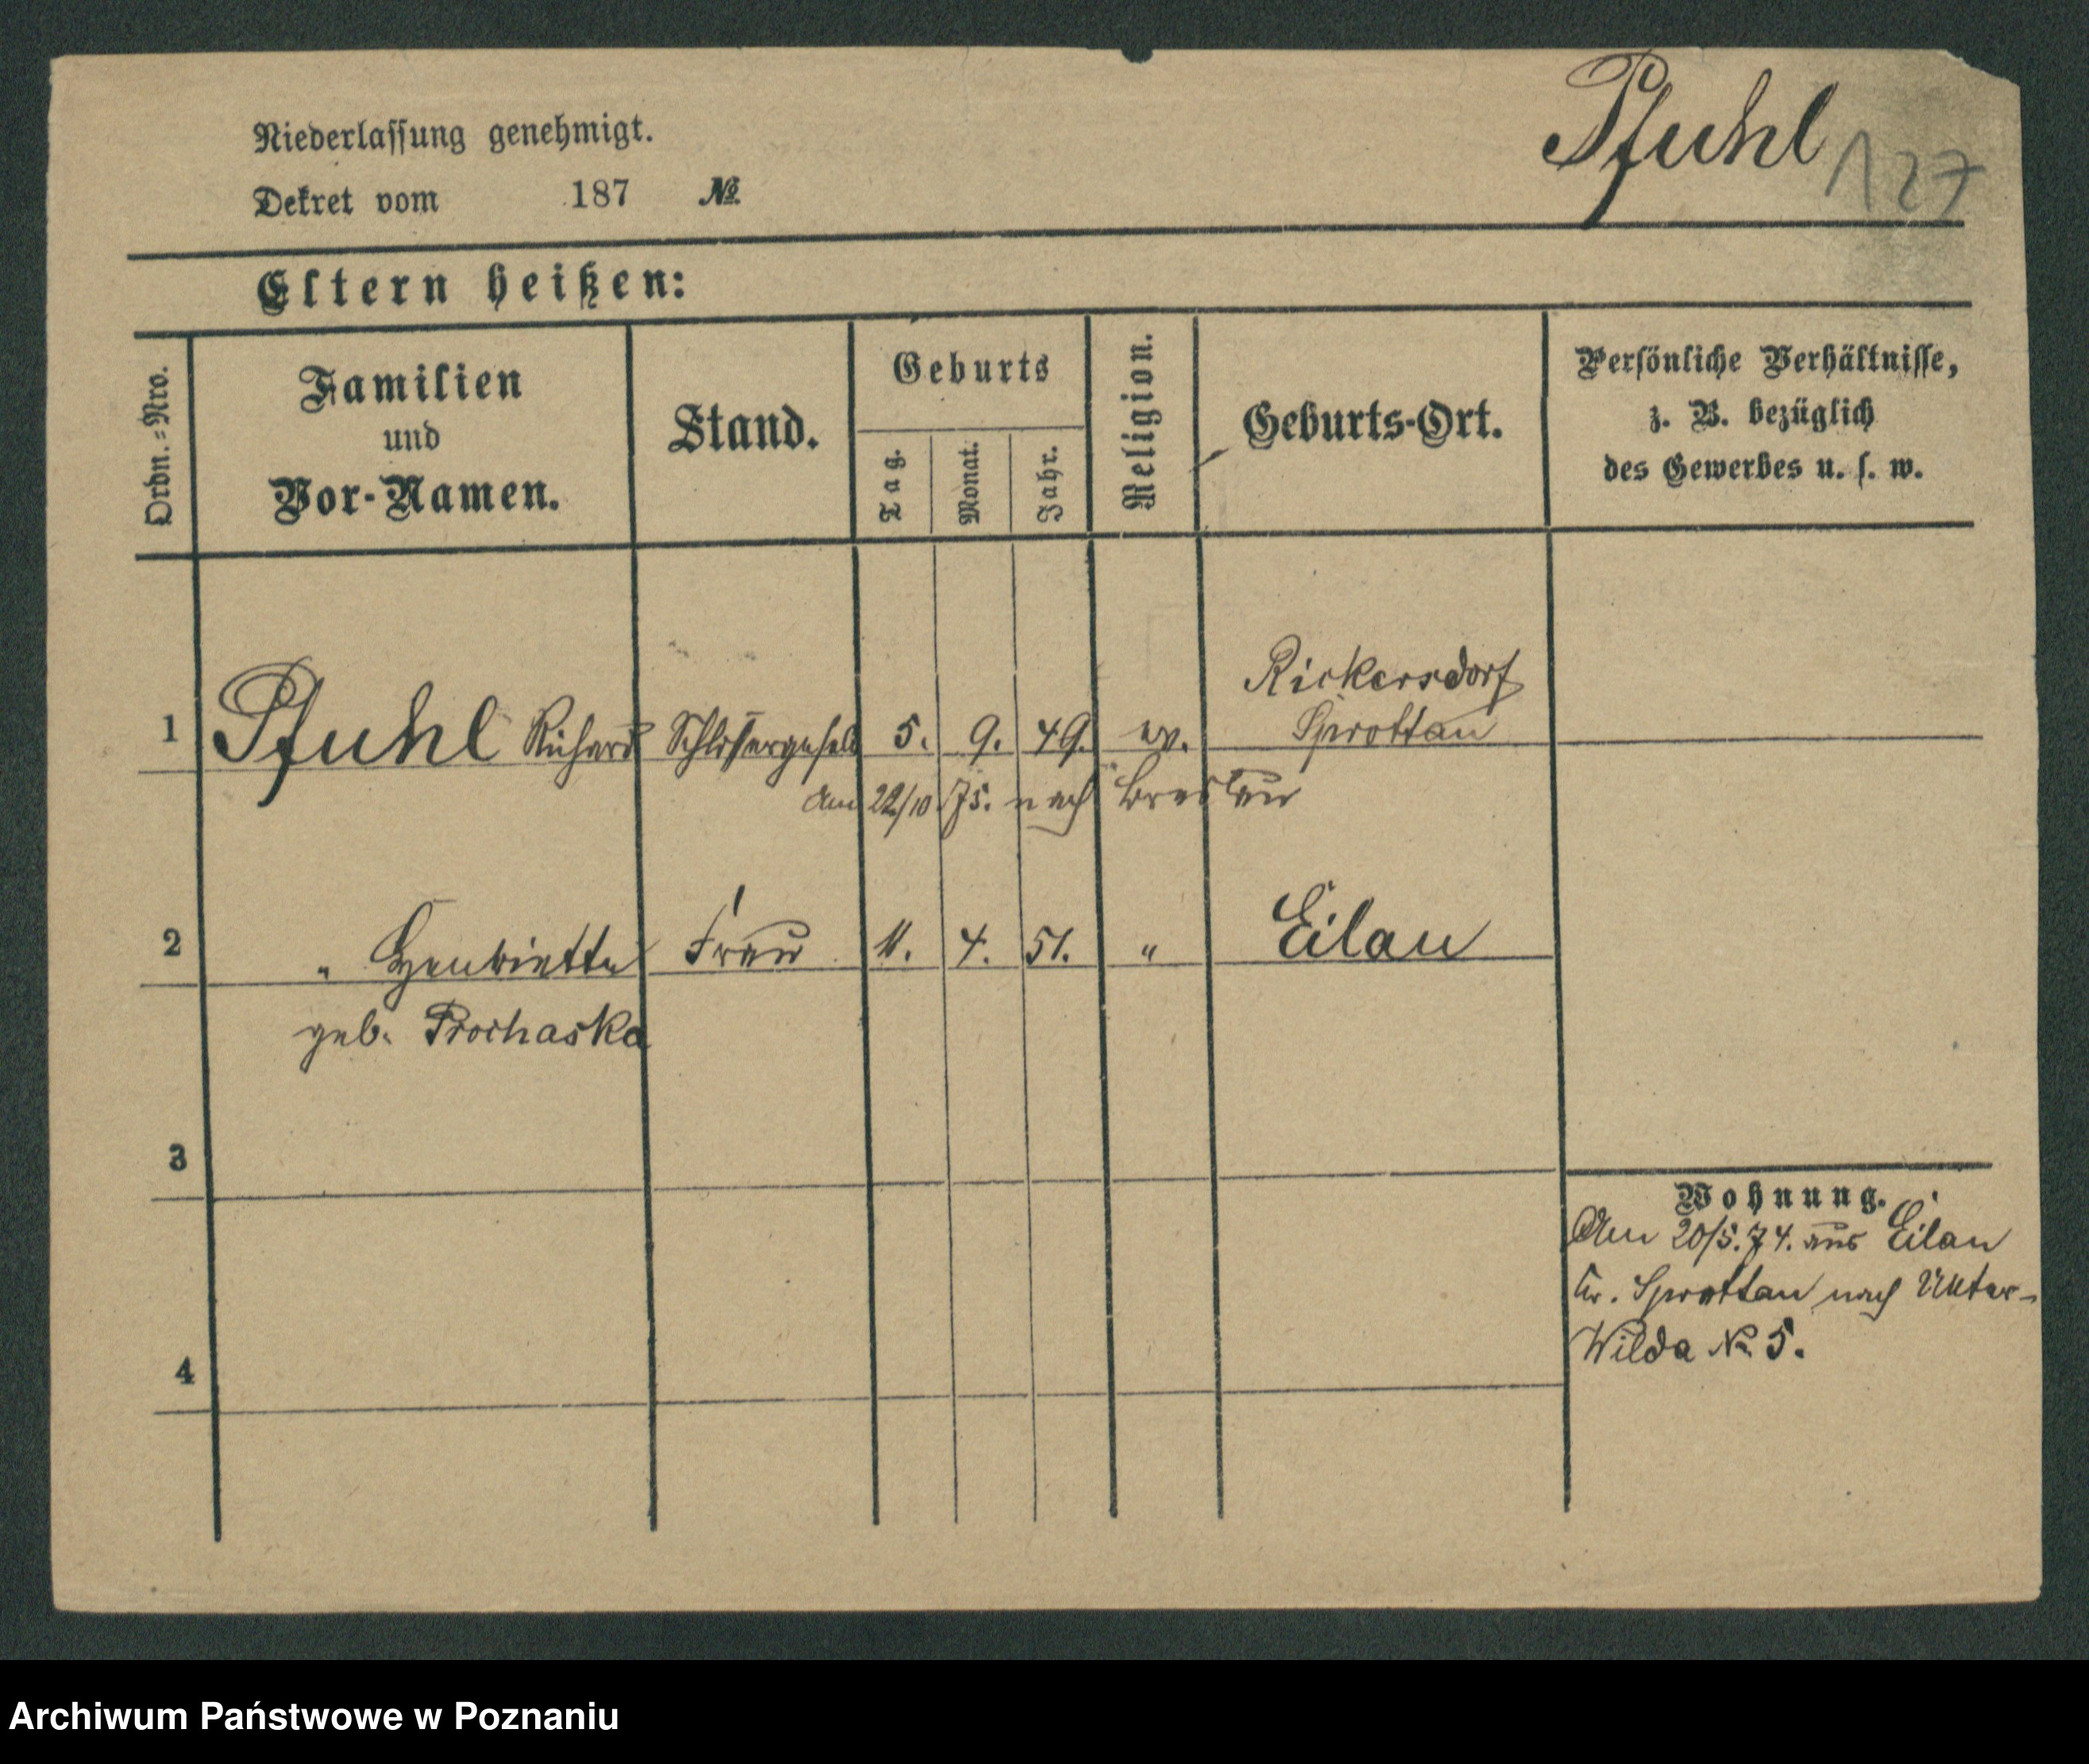 Pfuhl
127
Niederlassung genehmigt.
Dekret vom 187 №
Eltern heißen:
Ordn.=Nro.
Familien
und
Vor-Namen.
Stand.
Geburts
Tag.
Monat.
Jahr.
Religion.
Geburts-Ort.
Persönliche Verhältnisse,
z. B. bezüglich
des Gewerbes u. s. w.
Rickersdorf
1 Pfuhl Richard Schlossergesell 5. 9. 49. ev. Sprottau
Am 22/10 75. nach Breslau
2 " Henriette Frau 11. 4. 51. " Eilau
geb. Prochaska
3
Wohnung.
Am 20/5.74. aus Eilau
Kr. Sprottau nach Unter-
Wilda № 5.
4
Archiwum Państwowe w Poznaniu